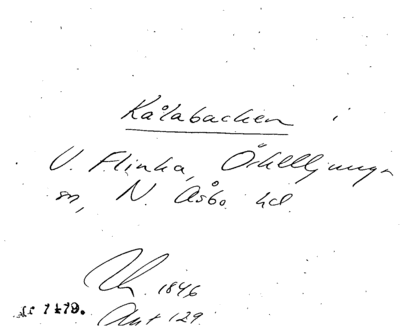 Kålabacken i
V. Flinka, Örkelljunga
sn, N. Åsbo hd.
1846
Akt 129